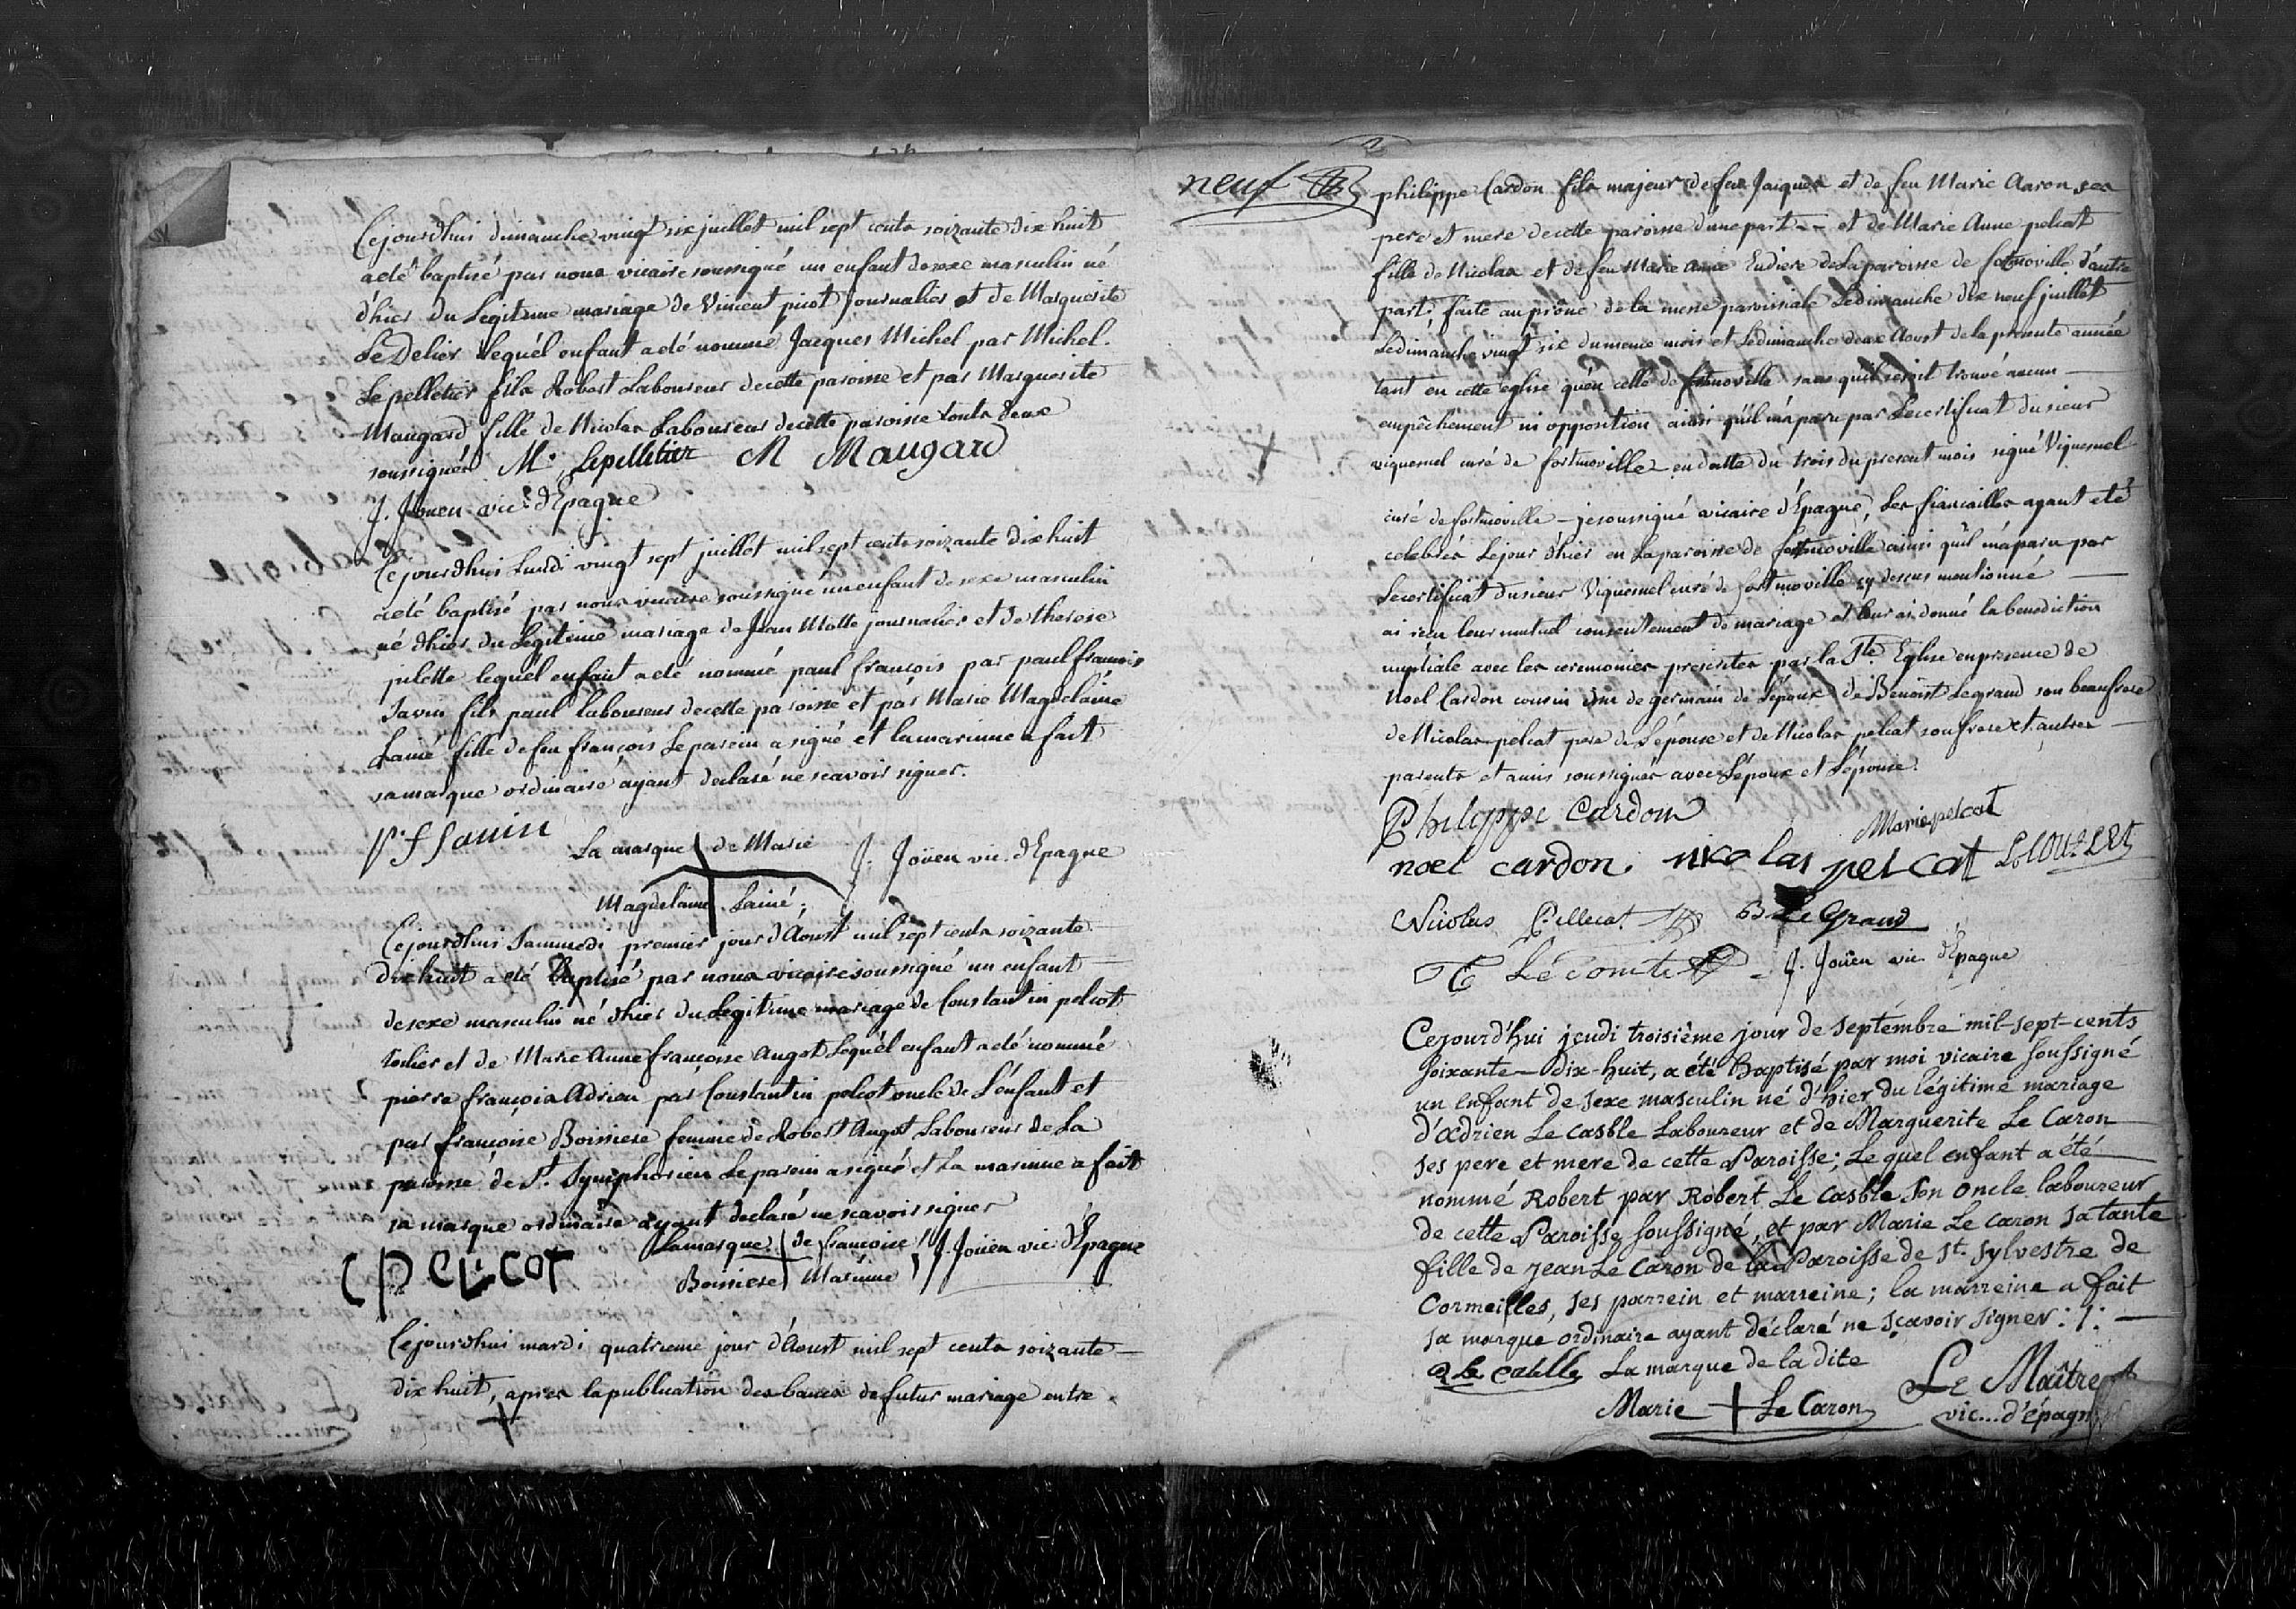 Cejourdhui dimanche vingt six juillet mil sept cents soixante dix huit
a eté baptisé par nous vicaire soussigné un enfant de sexe masculin né
d'hier du Legitime mariage de Vincent picot journalier et de Marguerite
Le Delier lequél enfant a eté nommé Jacques Michel par Michel
Lepelletier fils Robert Laboureur de cette paroisse et par Marguerite
Maugard fille de Nicolas Laboureur de cette paroisse touts deux
soussignés M. Lepelletier M Maugard
J. Joüen vic. d'Epagne
Cejourdhui Lundi vingt sept juillet mil sept cents soixante dix huit
a eté baptisé par nous vicaire soussigné un enfant de sexe masculin
né d'hier du Legitime mariage de Jean Motte journalier et de therese
julette lequél enfant a eté nommé paul françois par paul françois
Savin fils paul laboureur de cette paroisse et par Marie Magdelaine
Lainé fille de feu françois Le parein a signé et la mareinne a fait
sa marque ordinaire ayant declaré ne scavoir signer.
P. f Sauin La marque de Marie J. Joüen vic. d'Epagne
Magdelaine Lainé;
Cejourdhui Sammedi premier jour d'Aoust mil sept cents soixante
dix huit a eté baptisé par nous vicaire soussigné un enfant
de sexe masculin né d'hier du Legitime mariage de Constantin pelcot
toilier et de Marie Anne françoise Angot Lequél enfant a eté nommé
pierre françois Adrien par Constantin pelcot oncle de L'enfant et
par françoise Boissiere femme de Robert Angot Laboureur de La
paroisse de St. Symphorien Le parein a signé et La mareinne a fait
sa marque ordinaire ayant declaré ne scavoir signer
C PELCOT La marque de françoise J. Joüen vic d'Epagne
Boissiere Mareinne
Cejourdhui mardi quatrieme jour d'Aoust mil sept cents soixante
dix huit, apres la publication des bancs de futur mariage entre
neuf
philippe Cardon fils majeur de feu Jacques et de feu Marie Aaron ses
pere et mere de cette paroisse d'une part et de Marie Anne pelcat
fille de Nicolas et de feu Marie Anne Eudiere de La paroisse de fortmoville d'autre
part, faite au prône de la messe paroissiale Le dimanche dix neuf juillet
Le dimanche vingt six du meme mois et Le dimanche deux Aoust de la presente année
tant en cette eglise qu'en celle de fortmoville sans qu'il se soit trouvé aucun
empêchement ni opposition ainsi qu'il m'a paru par Le certificat du sieur
viquesnel curé de fortmoville en datte du trois du present mois signé Viquesnel
curé de fortmoville je soussigné vicaire d'Epagne, Les fiancailles ayant eté
celebrés Le jour d'hier en La paroisse de fortmoville ainsi qu'il m'a paru par
Le certificat du sieur Viquesnel curé de fortmoville cy dessus mentionné
ai reçu leur mutuel consentement de mariage et leur ai donné la benediction
nuptiale avec les ceremonies prescrites par la Ste. Eglise en presence de
Noel Cardon cousin de germain de L'epoux de Benoist Legrand son beaufrere
de Nicolas pelcat pere de L'épouse et de Nicolas pelcat son frere et autres
parents et amis soussignés avec L'époux et L'épouse.
Philippe Cardon Marie pelcat
noel cardon. nicolas pelcat
Nicolas Pellecat B Le Grand
Lecomte J. Joüen vic d'Epagne
Cejourd'hui jeudi troisième jour de septembre mil-sept-cents
soixante-dix-huit, a été Baptisé par moi vicaire soussigné
un enfant de sexe masculin né d'hier du légitime mariage
d'adrien Le casble Laboureur et de Marguerite Le Caron
ses pere et mere de cette Paroisse; Le quel enfant a été
nommé Robert par Robert Le Casble son oncle laboureur
de cette Paroisse soussigné, et par Marie Le Caron sa tante
fille de jean Le Caron de la Paroisse de st. sylvestre de
Cormeilles, ses parrein et marreine; la marreine a fait
sa marque ordinaire ayant déclaré ne sçavoir signer
R Le Casble La marque de la dite
Marie Le Caron Le Maître
vic... d'épagne